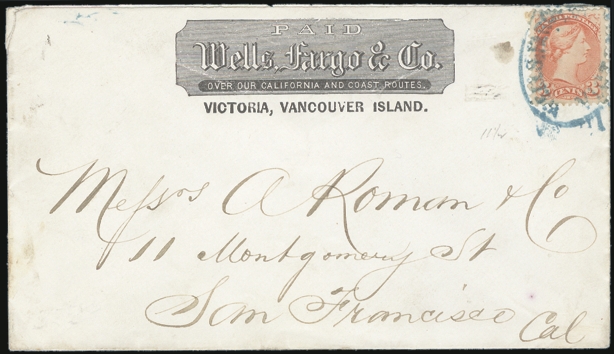 PAID
Wells, Fargo & Co.
OVER OUR CALIFORNIA AND COAST ROUTES.
VICTORIA, VANCOUVER ISLAND.
Messrs A Roman & Co
11 Montgomery St
San Francisco
Cal